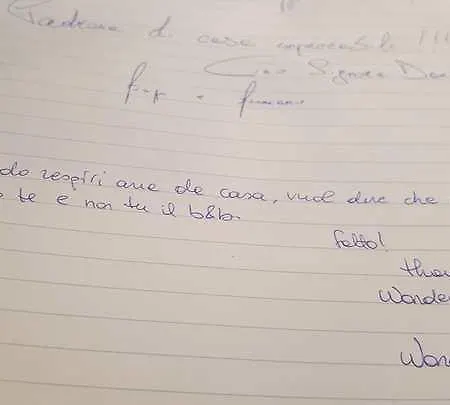 Padrona di casa impeccabile !!!
Ciao Signora
do respiri aria de casa, vuol dire che
te e non tu il b&b.
fatto!
Wonde
Won